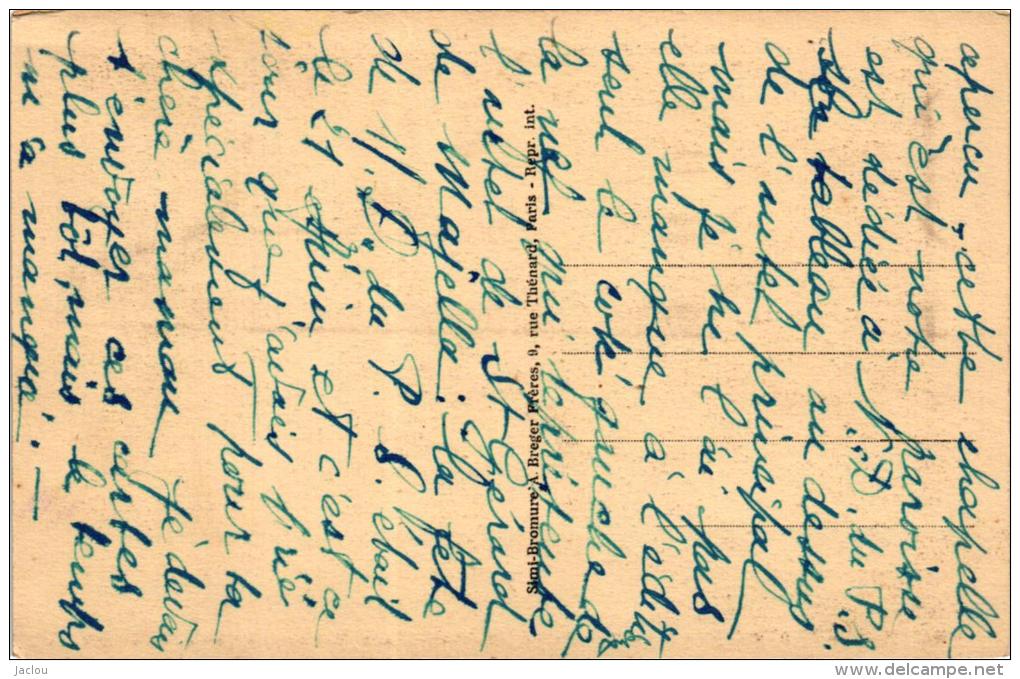 aperçu, cette chapelle
qui est notre paroisse
est dédiée à N. D. du P. S.
son tableau au dessus
de l'autel principal
mais je ne l'ai pas
elle manque à l'édit.
seul le coté gauche de
la nef qui représente
l'autel de St Gérard
de Majella: la fête
de N. D. du P. S. était
le 21 Juin et c'est ce
jour que j'avais prié
spécialement pour ta
chère maman je devais
t'envoyer ces cartes
plus tôt, mais le temps
m'a manqué. —
Simi-Bromure A. Breger Frères, 9, rue Thénard, Paris - Repr. int.
Jaclou
www.delcampe.net